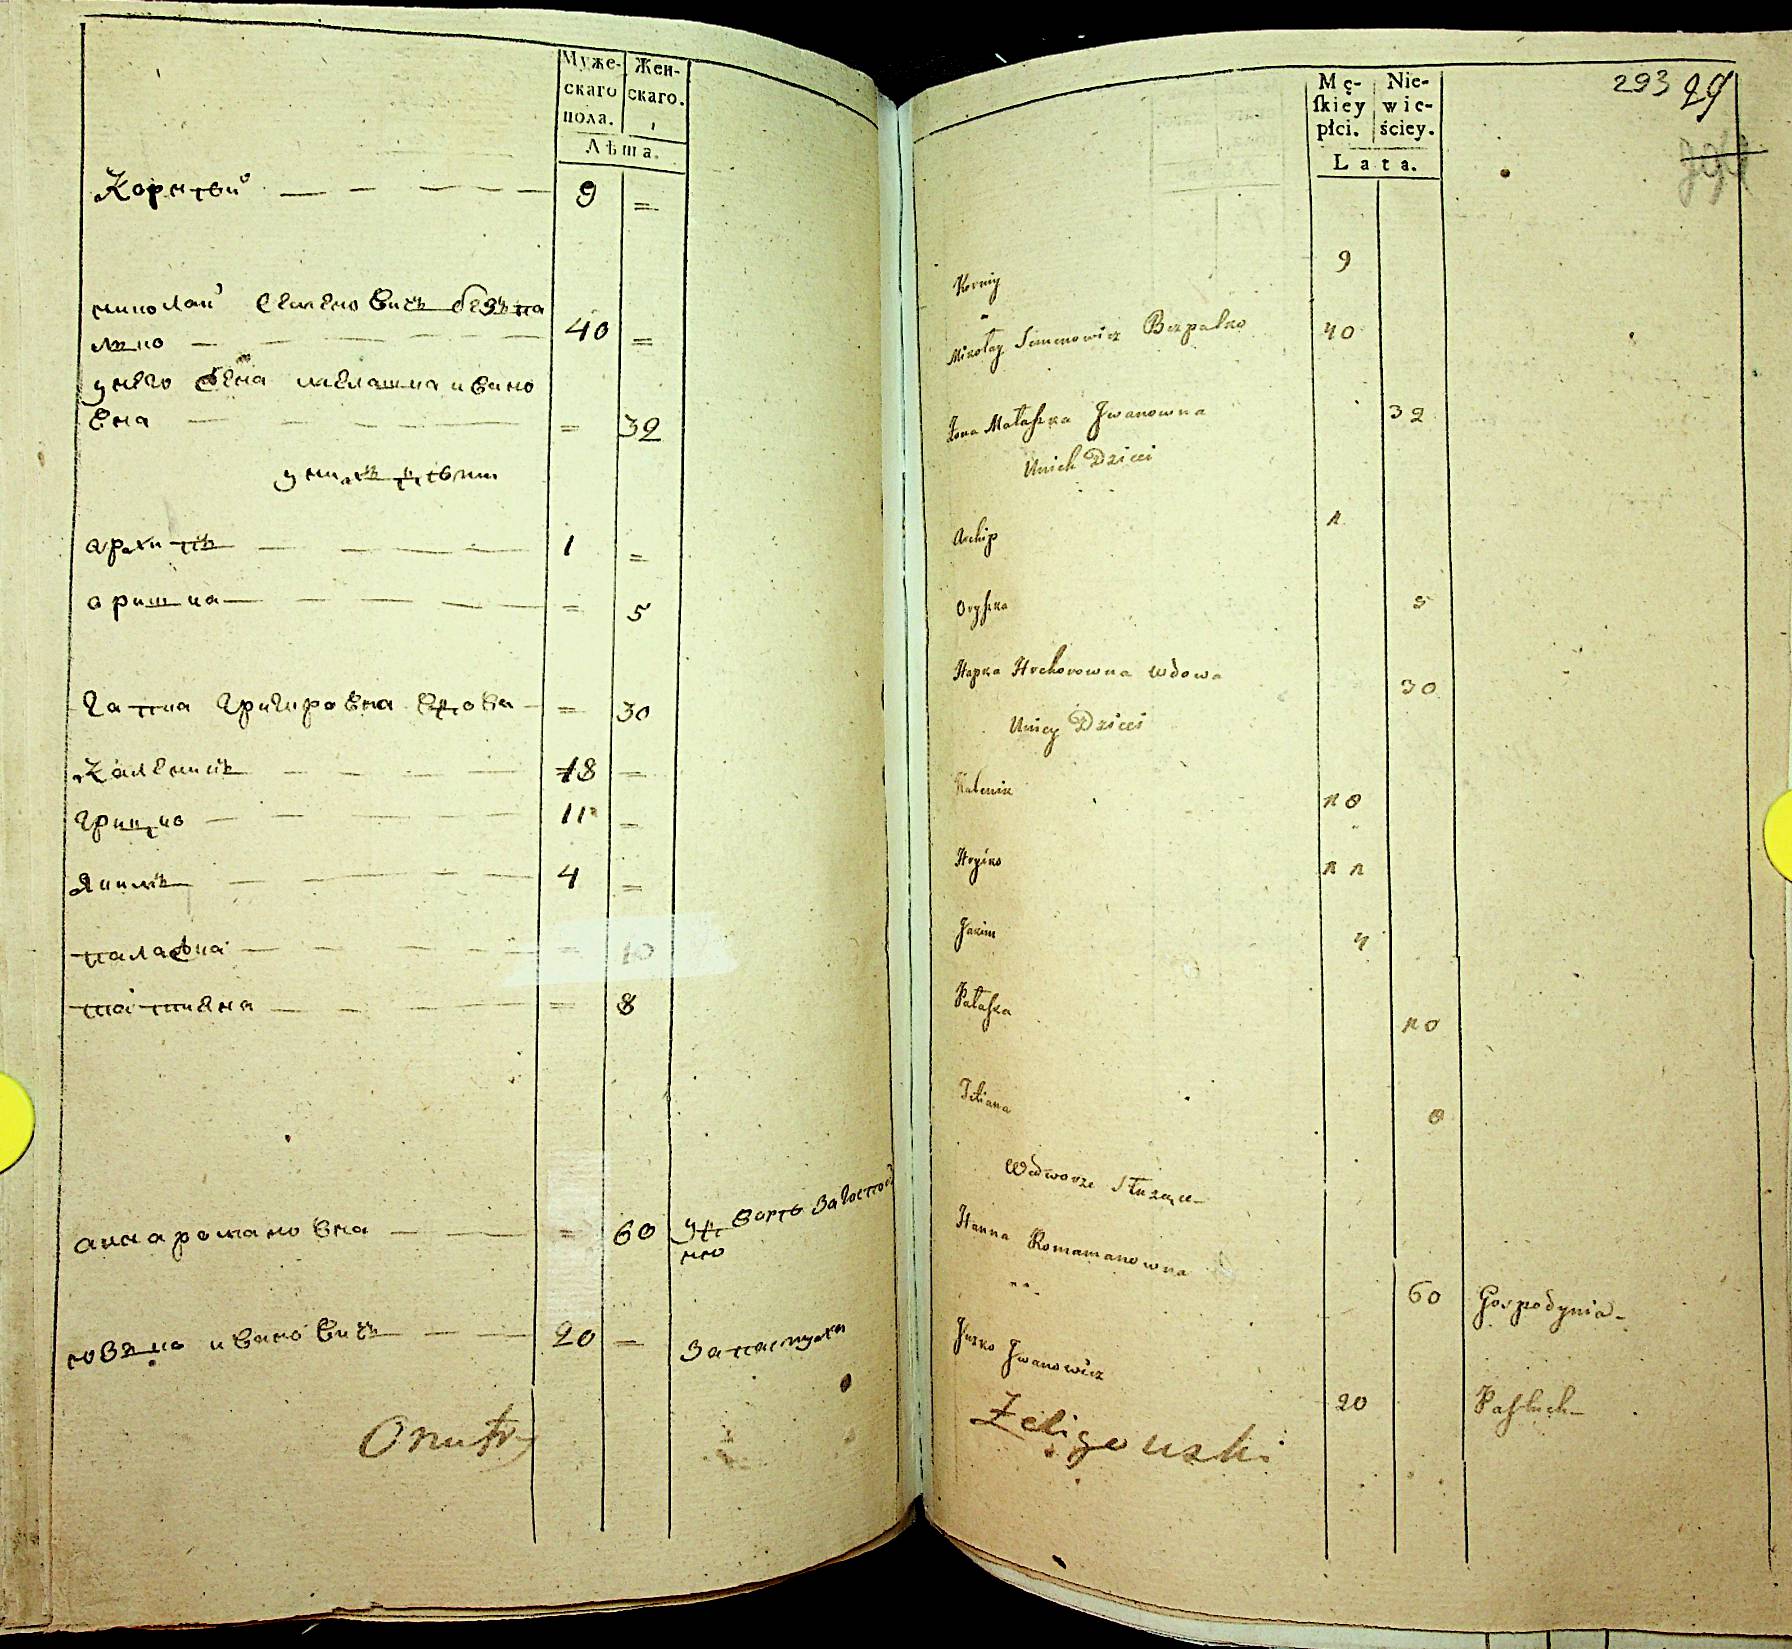 Муже-
скаго
пола.
Жен-
скаго.
Лѣта.
Корнѣй 9 =
николай семеновичъ безпа
лко 40 =
унего жена малашка ивано
вна = 32
унихъ дѣти
архипъ 1 =
оришка = 5
гапка григировна вдова = 30
Каленикъ 18 =
грицко 11 =
Якимъ 4 =
палажка = 10
татияна = 8
анна романовна = 60
юзько ивановичъ 20 = за пастуха
Mę-
ſkiéy
płci.
Nie-
wie-
ściey.
Lata.
293 29
Korniy 9
Mikołay Simenowicz Bezpalko 40
Żona Małaszka Jwanowna 32
Unich Dzieci
Archip 1
Oryszka 5
Hapka Hrehorowna wdowa 30
Uniey Dzieci
Kalenik 18
Hryćko 11
Jakim 4
Pałaszka 10
Tetiana 8
Wedworze Służące
Hanna Romamanowna 60 Gospodynia
Juzko Jwanowicz 20 Pastuch
Żeligowski